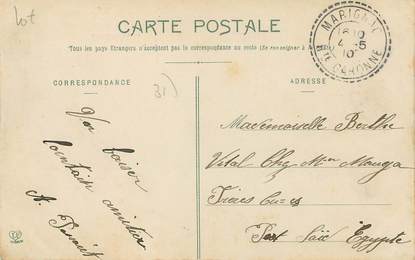 Lot
CARTE POSTALE
Tous les pays Etrangers n'acceptent pas la correspondance au recto (Se renseigner à
MARIGNAC
16 10
4 -5
10
HTE GARONNE
CORRESPONDANCE
ADRESSE
31)
Un baiser
lointain
A.
Mademoiselle Berthe
Vidal Chez Mr
Port Saïd Egypte